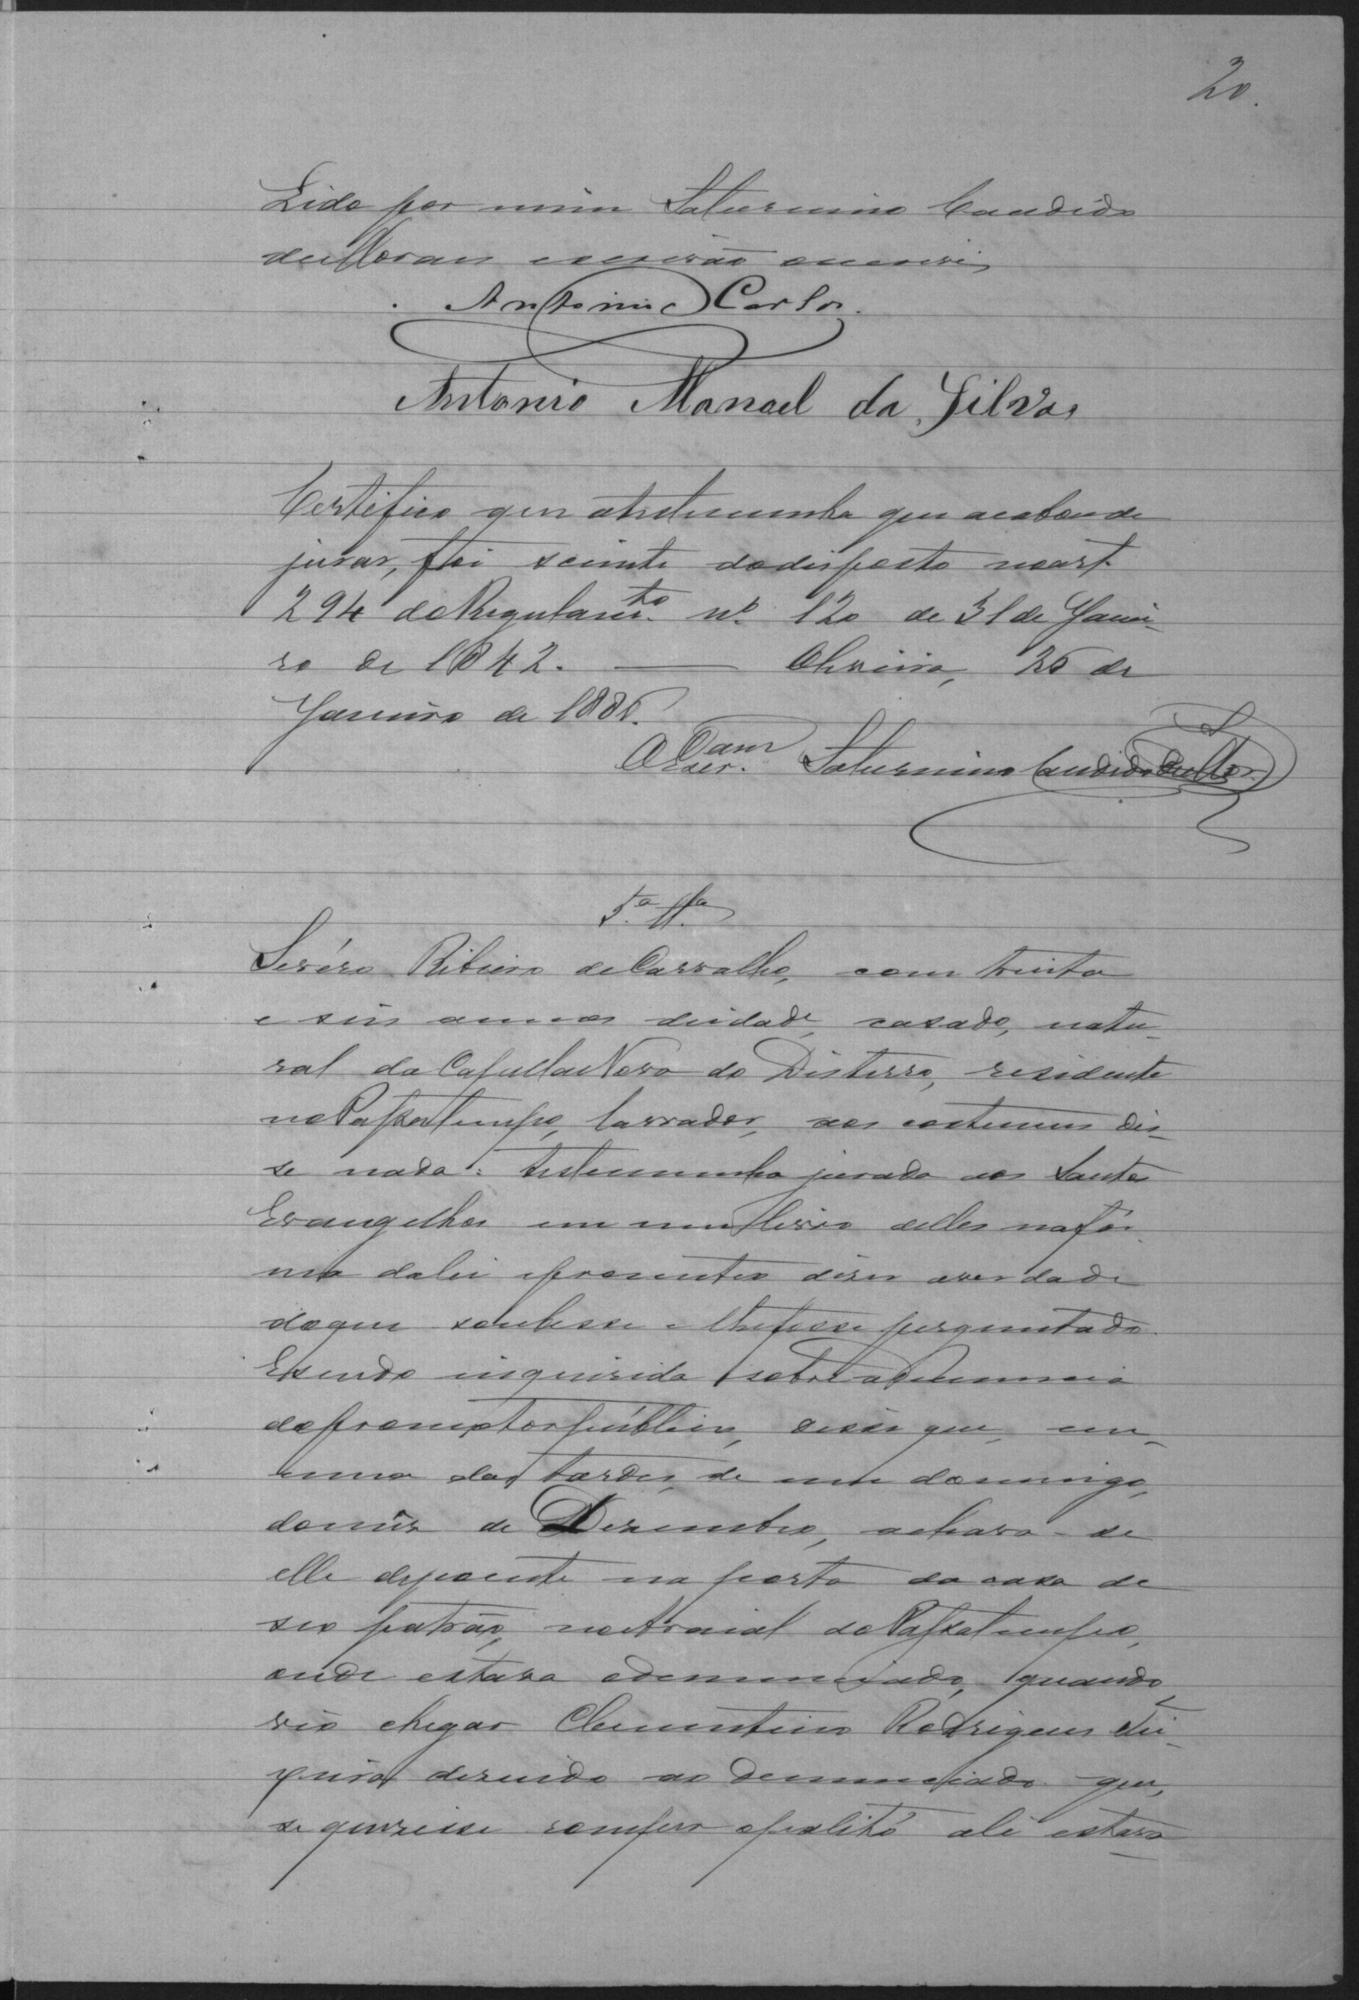 20.
Lido por mim Saturnino Candido
de Moraes escrivão escrevi,
Antonio Carlos.
Antonio Manoel da Silva
Certifico que atestemunha que acabou de
jurar, foi sciente dodisposto noart.
294 do Regulam.to nº 120 de 31 de Janei-
ro de 1842. — Oliveira, 26 de
Janeiro de 1886.
O Escr. Saturnino Candido de Mor.
5.a T.a
Sevéro Ribeiro de Carvalho, com trinta
e seis annos deidade, casado, natu-
ral da Capella Nova do Disterro, residente
no Passatempo, lavrador, aos costumes dis-
se nada: testemunha jurada aos Santos
Evangelhos em um livro delles nafór-
ma dalei eprometteo diser averdade
doque soubesse e lhefosse perguntado.
Esendo inquirida sobre adenuncia
dopromotor público, disse que, em
uma das tardes, de um domingo,
domês de Dezembro, achava-se
elle depoente na porta da casa de
seo patrão, noArraial do Passatempo,
onde estava odenunciado, quando
vio chegar Clementino Rodrigues
disendo ao denunciado que,
se quizesse romper opalitó ali estava